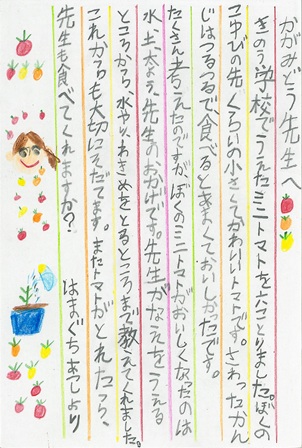 かがみどう先生へ
きのう、学校でうえたミニトマトを六ことりました。ぼくの
こゆびの先くらいの小さくてかわいいトマトです。さわったかん
じはつるつるで、食べるとあまくておいしかったです。
たくさん考えたのですが、ぼくのミニトマトがおいしくなったのは
水、土、太よう、先生のおかげです。先生がなえをうえる
ところから、水やり、わきめをとるところまで教えてくれました。
これからも大切にそだてます。またトマトがとれたら、
先生も食べてくれますか？
はまぐちあじより